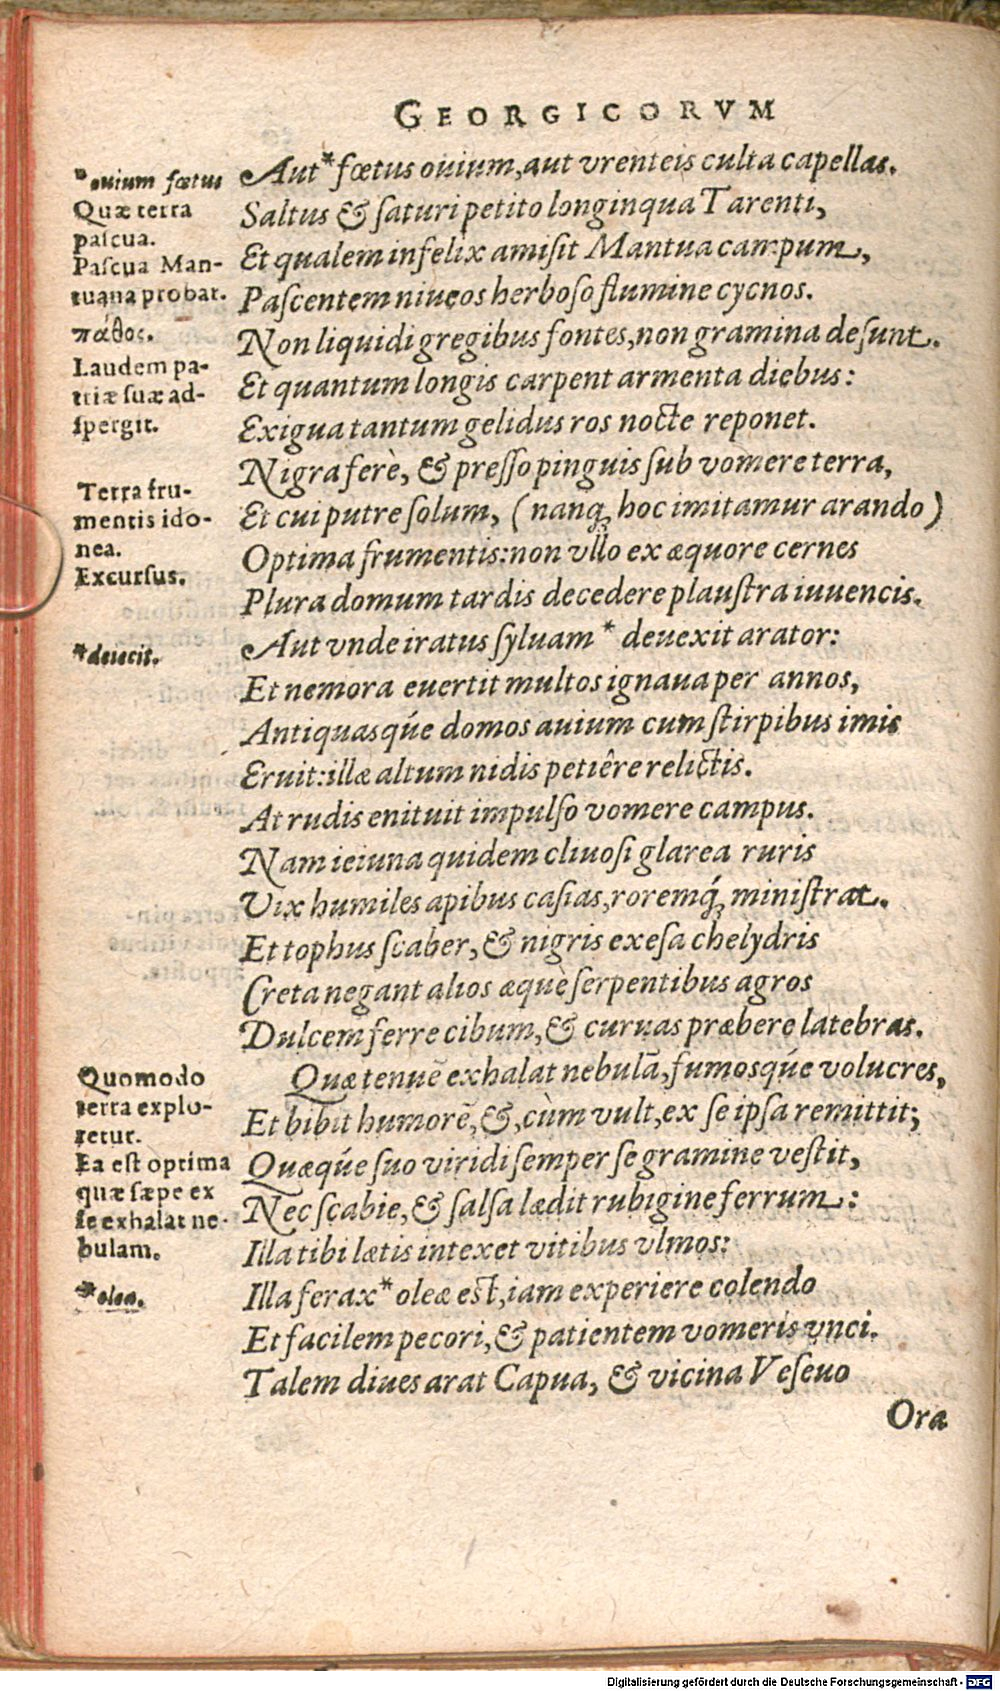 GEORGICORVM
*ouium fœtus
Quæ terra
paſcua.
Paſcua Man-
tuana probat.
πάθος.
Laudem pa-
triæ ſuæ ad-
ſpergit.
Terra fru-
mentis ido-
nea.
Excurſus.
*deiecit.
Quomodo
terra explo-
retur.
Ea eſt optima
quæ ſæpe ex
ſe exhalat ne-
bulam.
*olea.
Aut* fœtus ouium, aut vrenteis culta capellas.
Saltus & ſaturi petito longinqua Tarenti,
Et qualem infelix amiſit Mantua campum,
Paſcentem niueos herboſo flumine cycnos.
Non liquidi gregibus fontes, non gramina deſunt.
Et quantum longis carpent armenta diebus:
Exigua tantum gelidus ros nocte reponet.
Nigra ferè, & preſſo pinguis ſub vomere terra,
Et cui putre ſolum, (nanq; hoc imitamur arando)
Optima frumentis: non vllo ex æquore cernes
Plura domum tardis decedere plauſtra iuuencis.
Aut vnde iratus ſyluam* deuexit arator:
Et nemora euertit multos ignaua per annos,
Antiquasq́ue domos auium cum ſtirpibus imis
Eruit: illæ altum nidis petiêre relictis.
At rudis enituit impulſo vomere campus.
Nam ieiuna quidem cliuoſi glarea ruris
Vix humiles apibus caſias, roremq́; miniſtrat.
Et tophus ſcaber, & nigris exeſa chelydris
Creta negant alios æquè ſerpentibus agros
Dulcem ferre cibum, & curuas præbere latebras.
Quæ tenuē exhalat nebulā, fumosq́ue volucres,
Et bibit humorē, &, cùm vult, ex ſe ipſa remittit;
Quæq́ue ſuo viridi ſemper ſe gramine veſtit,
Nec ſcabie, & ſalſa lædit rubigine ferrum:
Illa tibi lætis intexet vitibus vlmos:
Illa ferax* oleæ eſt, iam experiere colendo
Et facilem pecori, & patientem vomeris vnci.
Talem diues arat Capua, & vicina Veſeuo
Ora
Digitalisierung gefördert durch die Deutsche Forschungsgemeinschaft - DFG